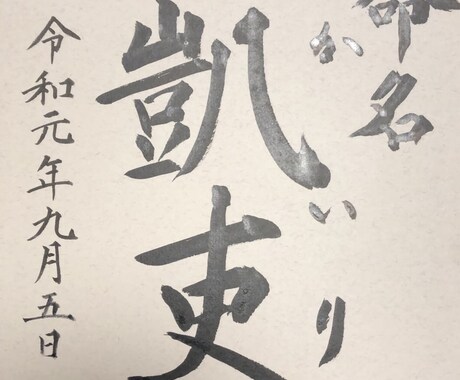 命名
かいり
凱吏
令和元年九月五日